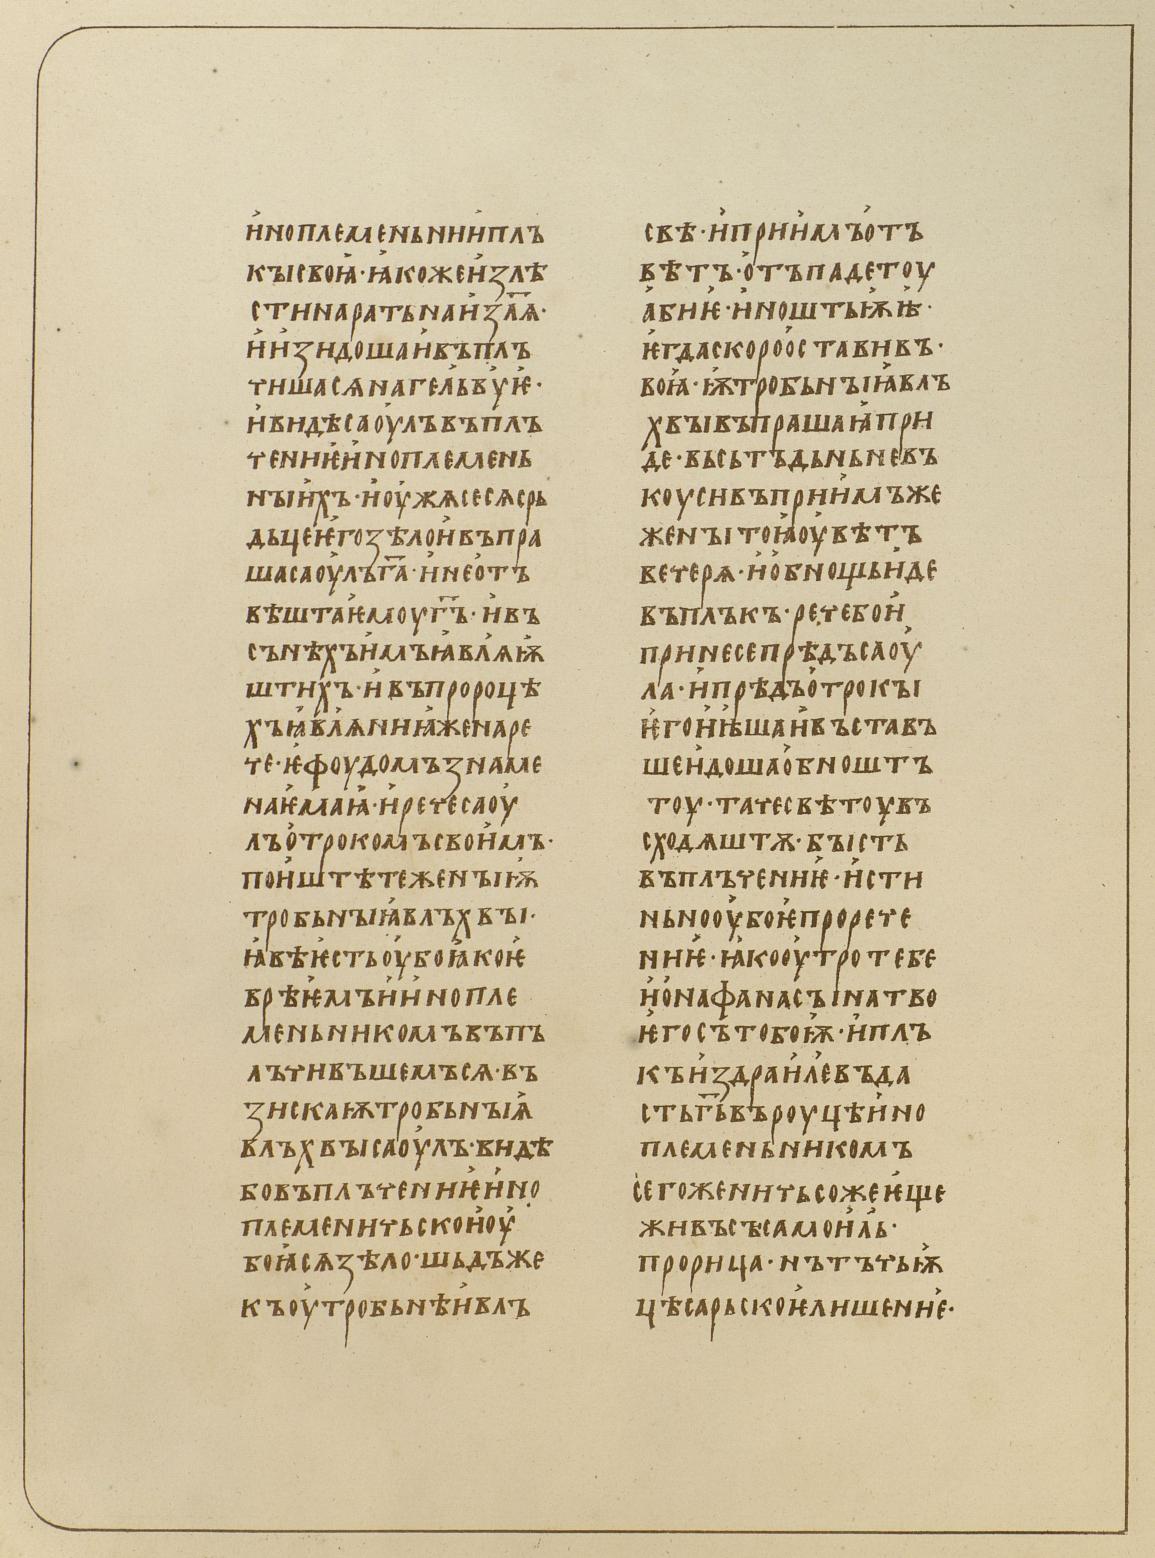 иноплеменьнии плъ
кы своꙗ · ꙗкоже излѣ
сти на рать на из҃лѧ ·
и изидоша и въпл̅ъ
чишасѧ на гелвуѥ ·
и видѣ саоулъ въпль
чениѥ иноплемень
ныихъ · и оужѧсе сѧ срь
дьце ѥго зѣло и въпра
ша саоулъ г҃а · и не отъ
вѣшта ѥмоу г҃ъ · и въ
сънѣхъ имъ ꙗвлѧѭ
штихъ · и въ пророцѣ
хъ ꙗвлѧниꙗ же наре
че · ѥфоудомъ знаме
наѥмаꙗ · и рече саоу
лъ отрокомъ своимъ ·
поиштѣте жены ѭ
тробьныꙗ влъхвы ·
ꙗвѣ ѥсть оубо ꙗко ѥ
врѣѥмъ и инопле
меньникомъ въпъ
лъчивъшемъ сѧ · въ
зиска ѭтробьныѧ
влъхвы саоулъ · видѣ
бо въплъчениѥ ино
племеничьско и оу
боꙗ сѧ зѣло · шьдъ же
къ оутробьнѣи влъ
свѣ · и приимъ отъ
вѣтъ · отъпадетоу
абиѥ · и ноштьѭ ѥ ·
ѥгда скоро оставивъ ·
воꙗ · ѭтробьныꙗ влъ
хвы въпрашаꙗ при
де · вьсь тъ дьнь не въ
коуси въприимъ же
жены тоꙗ оувѣтъ
ветерѧ · и обнощьниде
въ плъкъ · рече бо и
принесе прѣдъ саоу
ла · и прѣдъ отрокы
ѥго и ꙗша и въставъ
ше идоша об ношт
тоу · таче свѣтоу въ
сходѧштѫ · бысть
въплъчениѥ · исти
ньно оубо ѥ прорече
ниѥ · ꙗко оутро тебе
ионафанасъ i на тво
ѥго съ тобоѭ · и плъ
къ издраилевъ да
сть г҃ь въ роуцѣ ино
племеньникомъ
сегоже ничьсоже ѥще
живъ съ самоилъ ·
прорица · нъ тъчьѭ
цѣсарьскоѥ лишениѥ ·